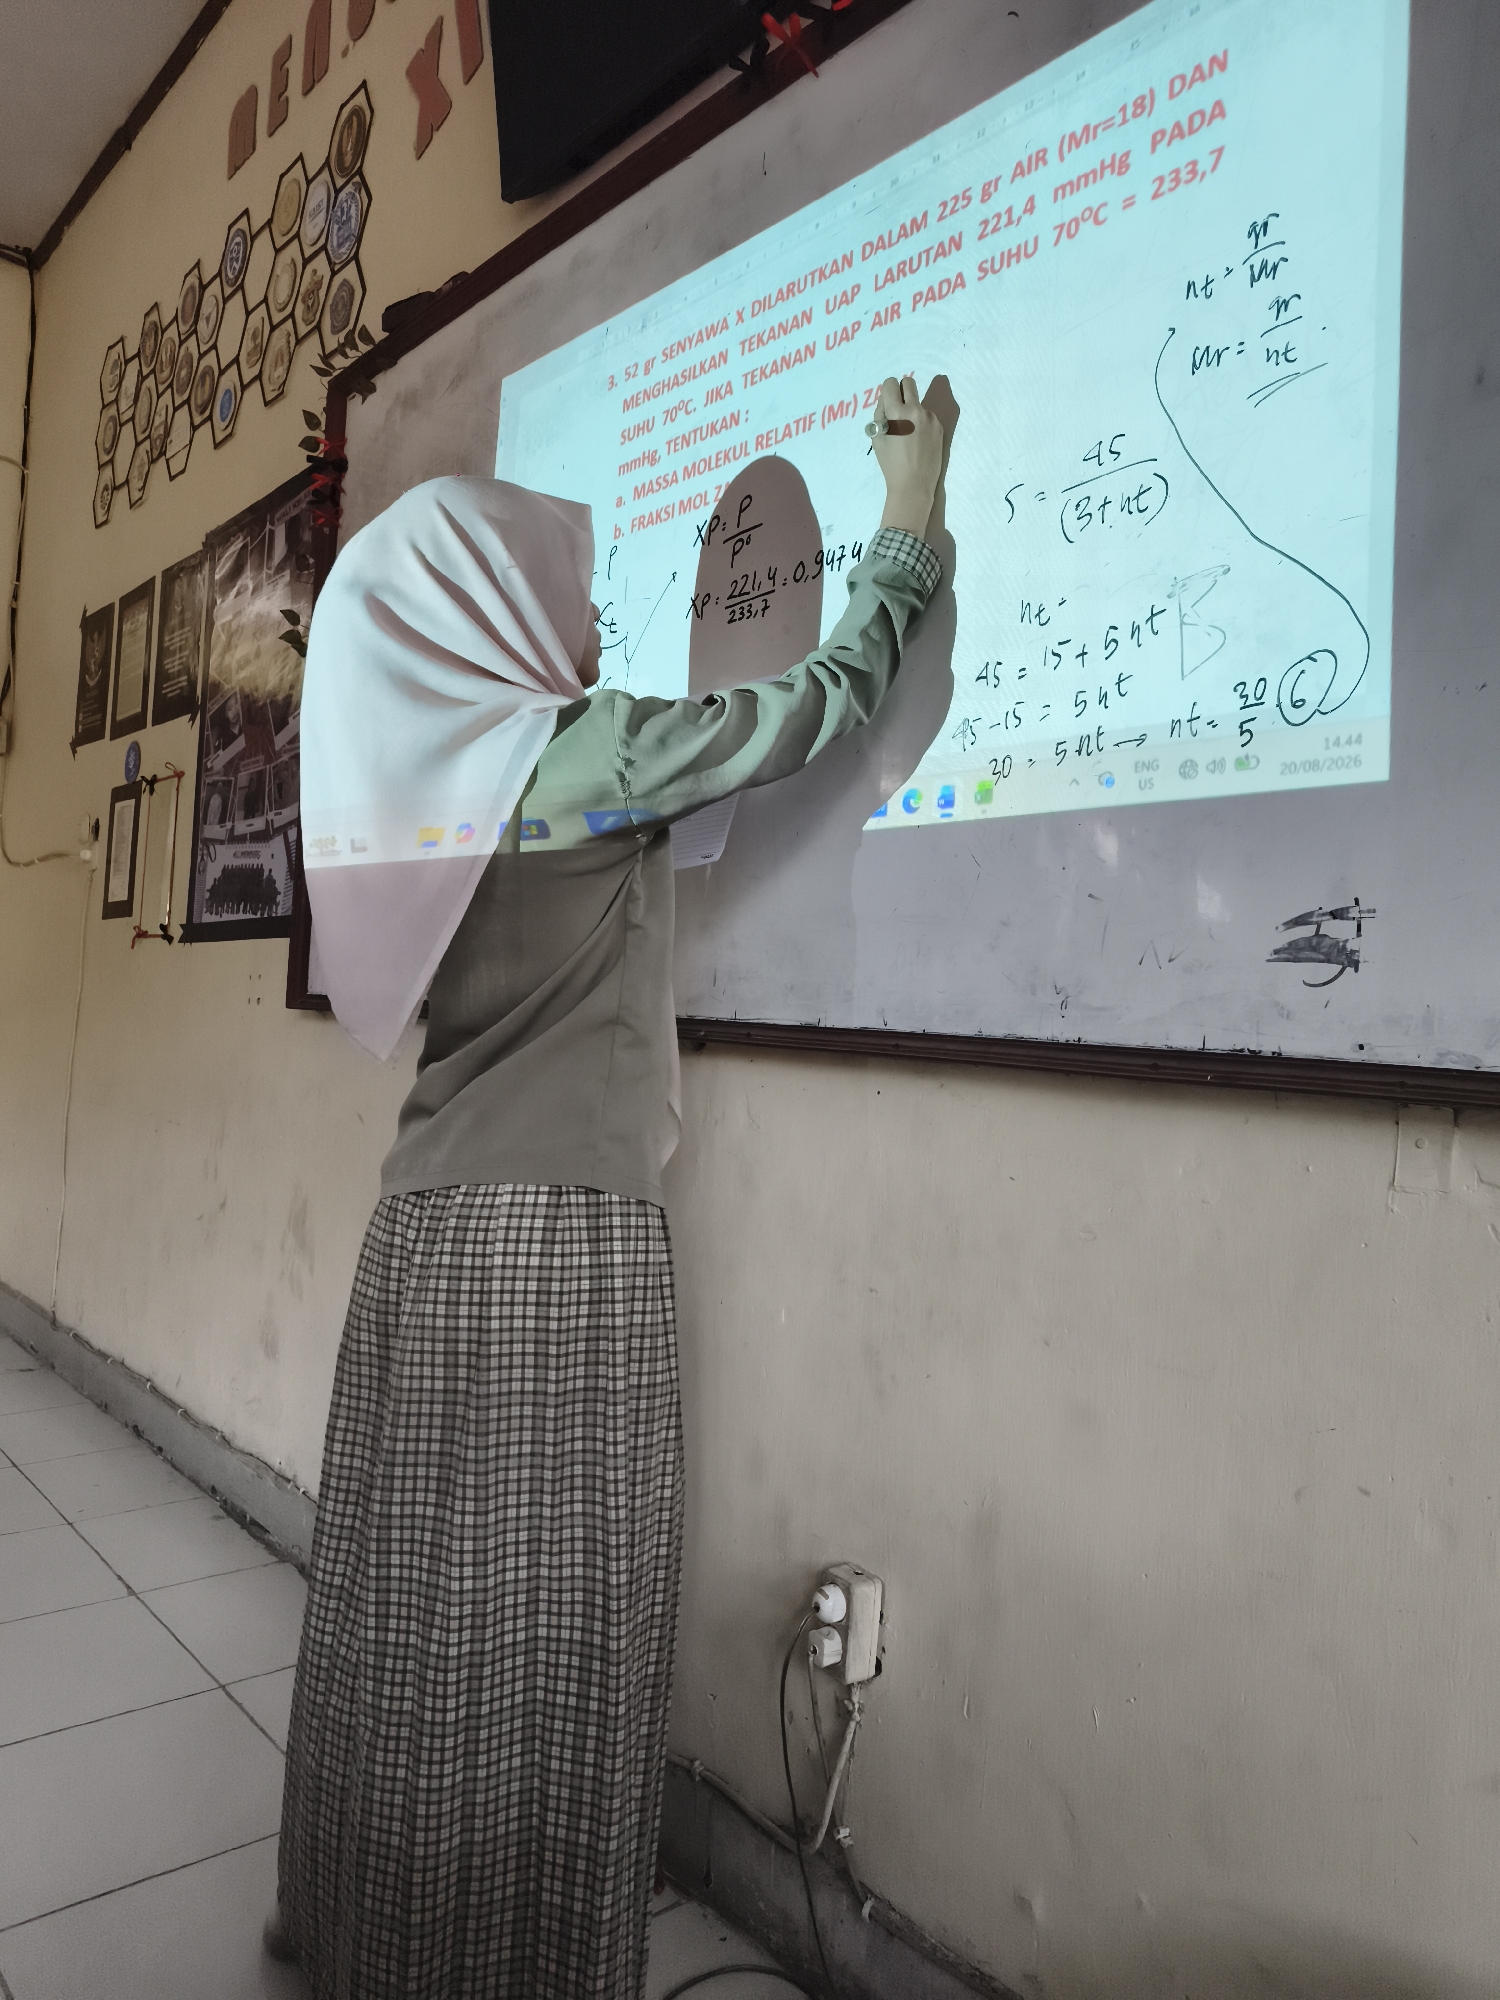 MEN
XI
3. 52 gr SENYAWA X DILARUTKAN DALAM 225 gr AIR (Mr=18) DAN
MENGHASILKAN TEKANAN UAP LARUTAN 221,4 mmHg PADA
SUHU 70°C. JIKA TEKANAN UAP AIR PADA SUHU 70°C = 233,7
mmHg, TENTUKAN :
a. MASSA MOLEKUL RELATIF (Mr) ZA
b. FRAKSI MOL ZA
P
Xt
XP = P
P°
XP = 221,4 = 0,9474
233,7
nt = gr
Mr
Mr = gr
nt
5 = 45
(3+nt)
nt =
45 = 15 + 5 nt
45 - 15 = 5 nt
30 = 5 nt → nt = 30 6
5
ENG
US
14.44
20/08/2026